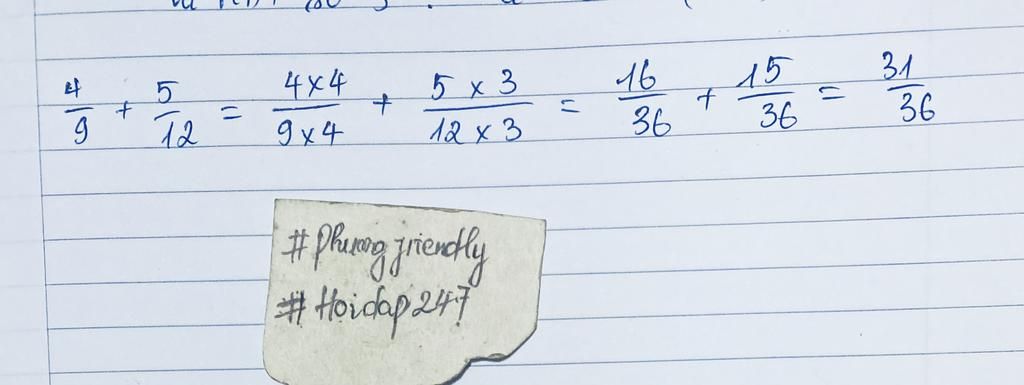 4/9 + 5/12 = 4x4/9x4 + 5 x 3/12 x 3 = 16/36 + 15/36 = 31/36
# Phuong friendly
# Hoidap247